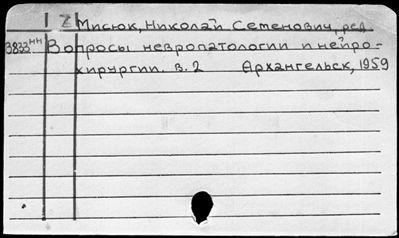 1 Z Мисюк, Николай Семенович, ред
3833нн Вопросы невропатологии и нейро-
хирургии. в. 2 Архангельск, 1959